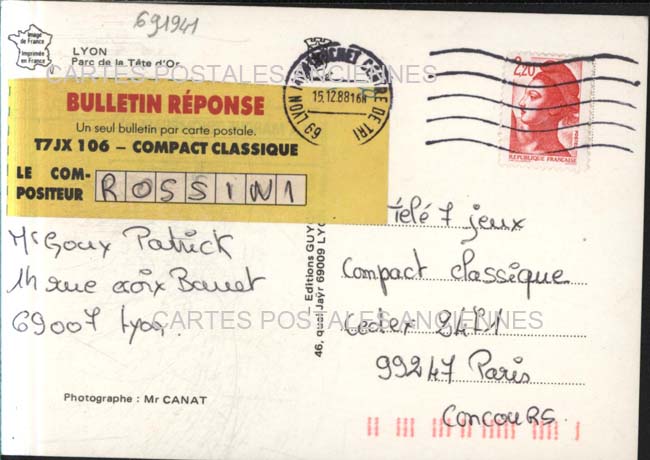 691941
Image de France
Imprimée en France
LYON
Parc de la Tête d'Or
CARTES POSTALES ANCIENNES
BULLETIN RÉPONSE
Un seul bulletin par carte postale.
T7JX 106 – COMPACT CLASSIQUE
LE COM-
POSITEUR
ROSSINI
Mr Goux Patrick
14 rue croix Barret
69007 Lyon.
Photographe : Mr CANAT
Editions GUY
46, quai Jaÿr 69009 LYO
69 LYON CENTRE DE TRI
15.12.88 16H
2,20
REPUBLIQUE FRANÇAISE
Télé 7 jeux
Compact classique
Cedex 2481
99247 Paris
CONCOURS.
CARTES POSTALES ANCIENNES